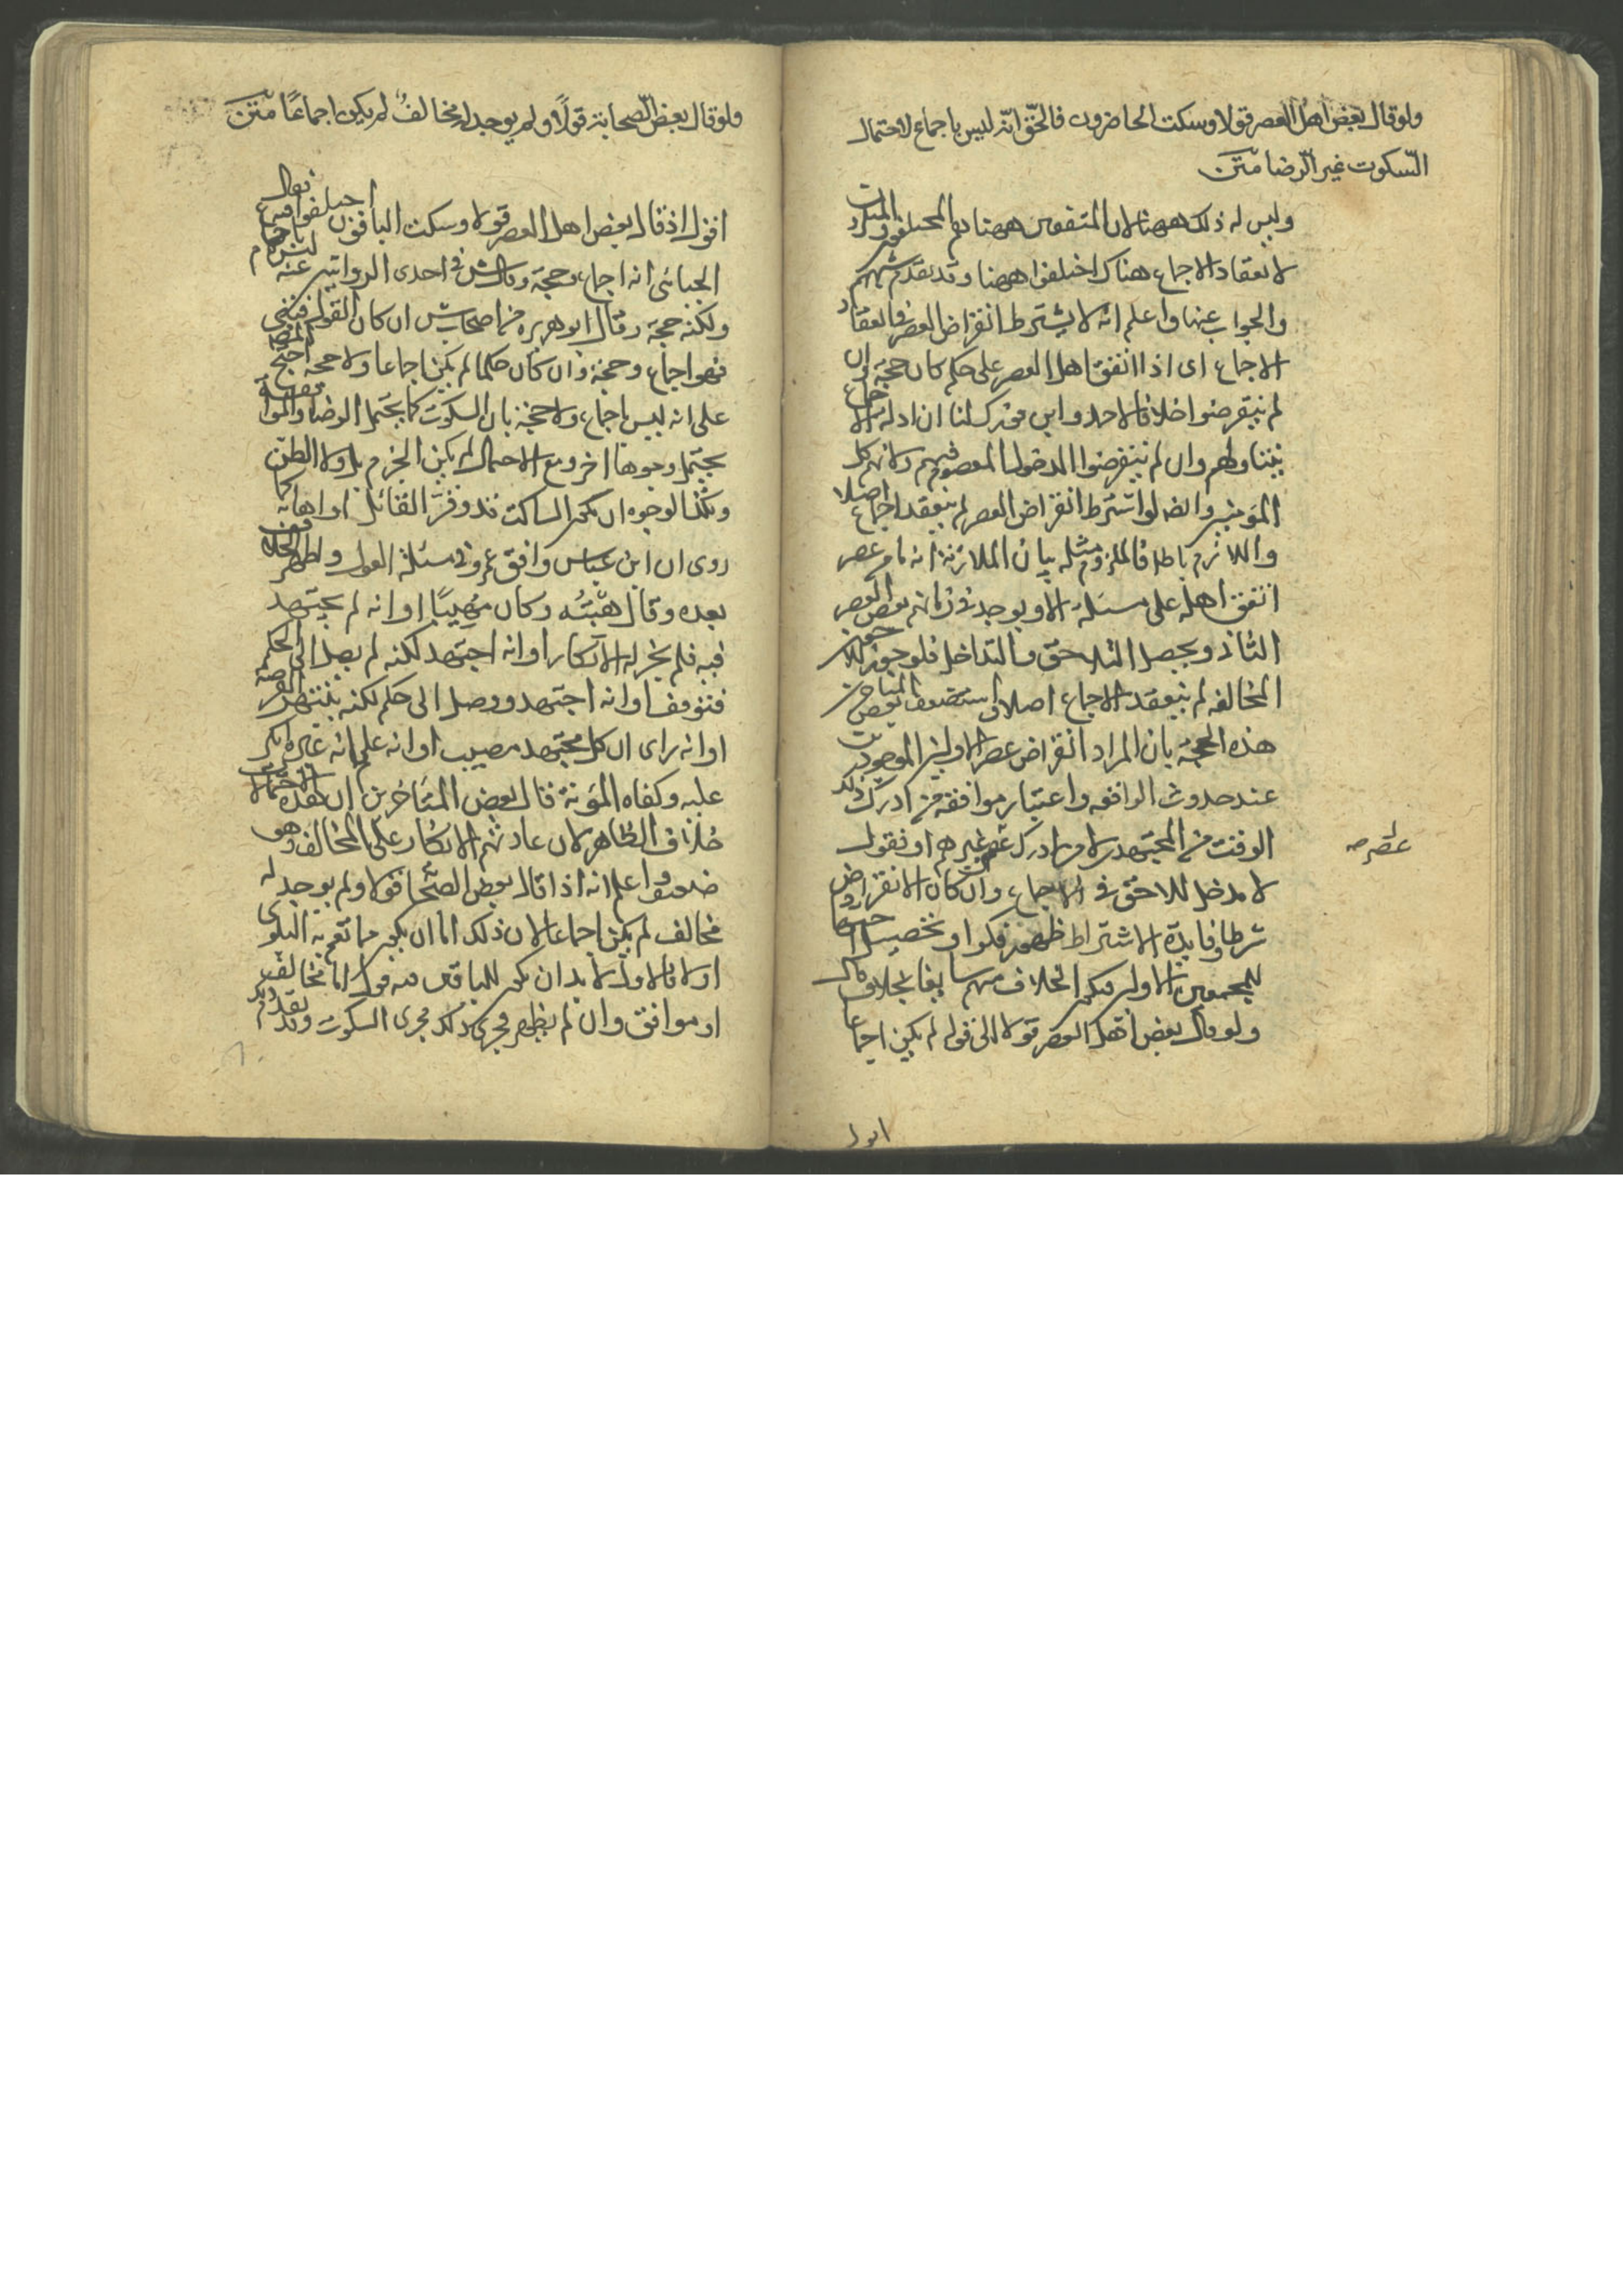 ولو قال بعض اهل العصر قولا وسكت الحاضرون فالحق انه ليس باجماع لاحتمال
السكوت غير الرضا متن
وليس له ذلك ههنا لان المتفقين ههنا هم المختلفون
لانعقاد الاجماع هناك اختلفوا ههنا وقد تقدم
والجواب عنها واعلم انه لا يشترط انقراض العصر في انعقاد
الاجماع اى اذا اتفق اهل العصر على حكم كان حجة وان
لم ينقرضوا خلافا لاحمد وابن فورك لنا ان ادلة الاجماع
يتناولهم وان لم ينقرضوا لدخول المعصوم فيهم ولانهم كل
المؤمنين وايضا لو اشترط انقراض العصر لم ينعقد اجماع اصلا
واللازم باطل فالملزوم مثله بيان الملازمة انه ما من عصر
اتفق اهله على مسئلة الا ويوجد في زمانهم بعض العصر
الثانى ويحصل التلاحق والتداخل فلو جوز للاحق
المخالفة لم ينعقد الاجماع اصلا استضعف بعض
هذه الحجة بان المراد انقراض عصر الاولين الموجودين
عند حدوث الواقعة واعتبار موافقة من ادرك ذلك
الوقت من المجتهدين لا من ادرك عصر غيرهم او نقول
عصر صح
لا مدخل للاحق في الاجماع وان كان الانقراض
شرطا وفايدة الاشتراط
للمجمعين الاولين فيكون الخلاف منهم سابقا بخلاف قال
ولو قال بعض اهل العصر قولا الى قوله لم يكن اجماعا
اقول
ولو قال بعض الصحابة قولا ولم يوجد له مخالف لم يكن اجماعا متن
اقول اذا قال بعض اهل العصر قولا وسكت الباقون اختلفوا فيه فقال
الجبائى انه اجماع وحجة وقال ش في احدى الروايتين عنه ليس باجماع
ولكنه حجة وقال ابو هريرة من اصحاب ش ان كان القول
فهو اجماع وحجة وان كان حكما لم يكن اجماعا ولا حجة احتج المص
على انه ليس باجماع ولا حجة بان السكوت كما يحتمل الرضا والموافقة
يحتمل وجوها اخر ومع الاحتمال لم يكن الجزم بل ولا الظن
وتلك الوجوه ان يكون الساكت قد وقر القائل او اهابه كما
روى ان ابن عباس وافق عمر في مسئلة العول واظهر الخلاف
بعده وقال هبته وكان مهيبا او انه لم يجتهد
فيه فلم يجز له الانكار او انه اجتهد لكنه لم يصل الى الحكم
فتوقف او انه اجتهد ووصل الى حكم لكنه ينتهز الفرصة
او انه راى ان كل مجتهد مصيب او انه علم انه غيره انكر
عليه وكفاه المؤنة قال بعض المتاخرين ان هذه الاحتمالات
خلاف الظاهر لان عادتهم الانكار على المخالف وهو
ضعيف واعلم انه اذا قال بعض الصحابة قولا ولم يوجد له
مخالف لم يكن اجماعا لان ذلك اما ان يكون مما تعم به البلوى
او لا فالاول لا بد ان يكون للباقين فيه قول اما مخالف
او موافق وان لم يظهر فجرى ذلك مجرى السكوت وقد تقدم